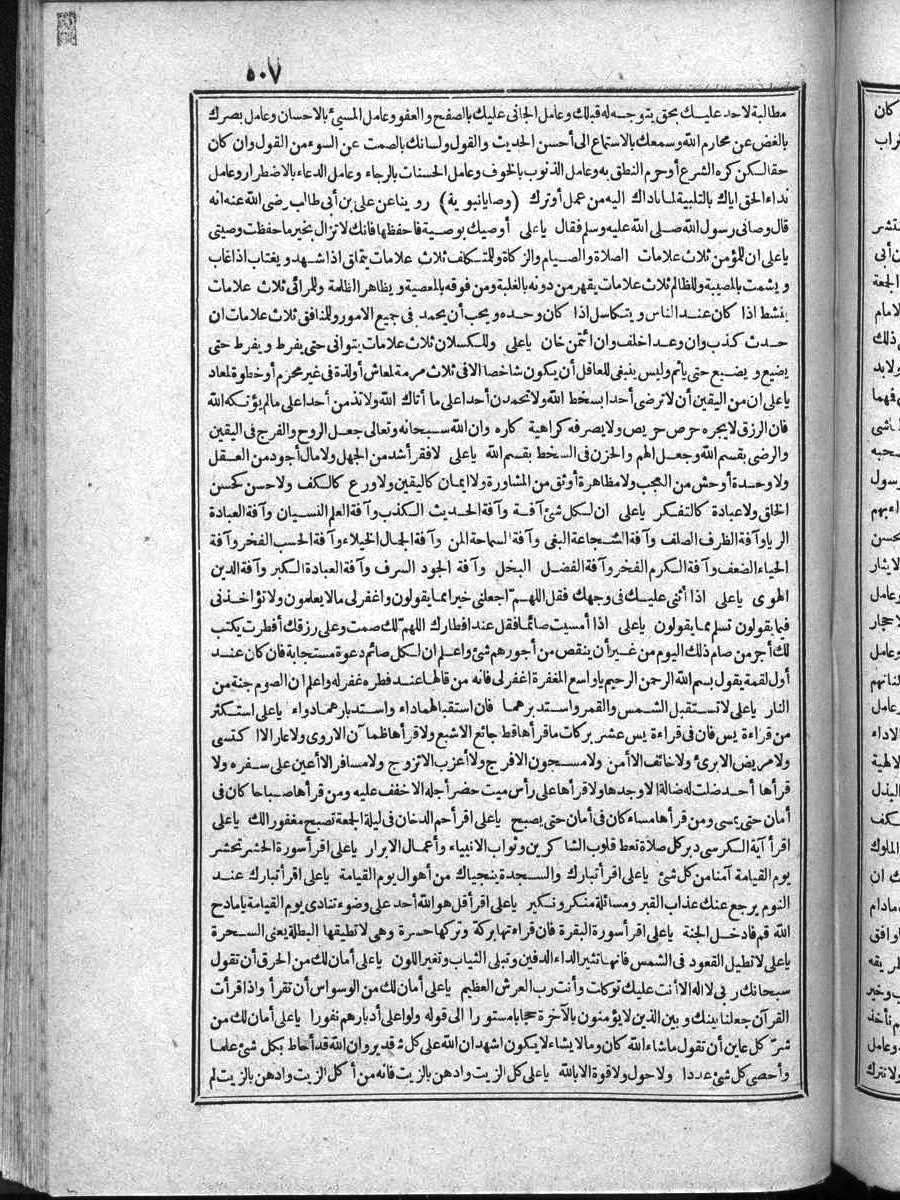 ٥٠٧
مطالبة لاحد عليك بحق يتوجه له قبلك وعامل الجانى عليك بالصفح والعفو وعامل المسيئ بالاحسان وعامل بصرك
بالغض عن محارم الله وسمعك بالاستماع الى أحسن الحديث والقول ولسانك بالصمت عن السوء من القول وان كان
حقا لكن كره الشرع أو حرم النطق به وعامل الذنوب بالخوف وعامل الحسنات بالرجاء وعامل الدعاء بالاضطرار وعامل
نداء الحق اياك بالتلبية لما ناداك اليه من عمل أو ترك (وصايا نبوية) روينا عن على بن أبى طالب رضى الله عنه انه
قال وصانى رسول الله صلى الله عليه وسلم فقال ياعلى أوصيك بوصية فاحفظها فانك لاتزال بخير ما حفظت وصيتى
ياعلى ان للمؤمن ثلاث علامات الصلاة والصيام والزكاة وللمتكلف ثلاث علامات يتملق اذا شهد ويغتاب اذا غاب
ويشمت بالمصيبة وللظالم ثلاث علامات يقهر من دونه بالغلبة ومن فوقه بالمعصية ويظاهر الظلمة وللمرائى ثلاث علامات
ينشط اذا كان عند الناس ويتكاسل اذا كان وحده ويحب أن يحمد فى جميع الامور وللمنافق ثلاث علامات ان
حدث كذب وان وعد اخلف وان ائتمن خان ياعلى وللكسلان ثلاث علامات يتوانى حتى يفرط ويفرط حتى
يضيع ويضيع حتى يأثم وليس ينبغى للعاقل أن يكون شاخصا الافى ثلاث مرمة لمعاش أولذة فى غير محرم أوخطوة لمعاد
ياعلى ان من اليقين أن لاترضى أحدا بسخط الله ولا تحمدن أحدا على ما أتاك الله ولا تذمن أحدا على مالم يؤتكه الله
فان الرزق لايجره حرص حريص ولا يصرفه كراهية كاره وان الله سبحانه وتعالى جعل الروح والفرج فى اليقين
والرضى بقسم الله وجعل الهم والحزن فى السخط بقسم الله ياعلى لافقر أشد من الجهل ولا مال أجود من العقل
ولا وحدة أوحش من العجب ولا مظاهرة أوثق من المشاورة ولا ايمان كاليقين ولا ورع كالكف ولا حسن كحسن
الخلق ولا عبادة كالتفكر ياعلى ان لكل شئ آفة وآفة الحديث الكذب وآفة العلم النسيان وآفة العبادة
الريا وآفة الظرف الصلف وآفة الشجاعة البغى وآفة السماحة المن وآفة الجمال الخيلاء وآفة الحسب الفخر وآفة
الحياء الضعف وآفة الكرم الفخر وآفة الفضل البخل وآفة الجود السرف وآفة العبادة الكبر وآفة الدين
الهوى ياعلى اذا أثنى عليك فى وجهك فقل اللهم اجعلنى خيرا مما يقولون واغفر لى مالا يعلمون ولا تؤاخذنى
فيما يقولون تسلم مما يقولون ياعلى اذا أمسيت صائما فقل عند افطارك اللهم لك صمت وعلى رزقك أفطرت يكتب
لك أجر من صام ذلك اليوم من غير أن ينقص من أجورهم شئ واعلم ان لكل صائم دعوة مستجابة فان كان عند
أول لقمة يقول بسم الله الرحمن الرحيم ياواسع المغفرة اغفر لى فانه من قالها عند فطره غفر له واعلم ان الصوم جنة من
النار ياعلى لاتستقبل الشمس والقمر واستدبرهما فان استقبالهما داء واستدبارهما دواء ياعلى استكثر
من قراءة يس فان فى قراءة يس عشر بركات ماقرأها قط جائع الاشبع ولا قرأها ظمآن الاروى ولا عار الا اكتسى
ولا مريض الابرئ ولا خائف الاأمن ولا مسجون الافرج ولا أعزب الاتزوج ولا مسافر الاأعين على سفره ولا
قرأها أحد ضلت له ضالة الاوجدها ولا قرأها على رأس ميت حضر أجله الاخفف عليه ومن قرأها صباحا كان فى
أمان حتى يمسى ومن قرأها مساء كان فى أمان حتى يصبح ياعلى اقرأ حم الدخان فى ليلة الجمعة تصبح مغفورا لك ياعلى
اقرأ آية الكرسى دبر كل صلاة تعط قلوب الشاكرين وثواب الانبياء وأعمال الابرار ياعلى اقرأ سورة الحشر تحشر
يوم القيامة آمنا من كل شئ ياعلى اقرأ تبارك والسجدة ينجياك من أهوال يوم القيامة ياعلى اقرأ تبارك عند
النوم يرجع عنك عذاب القبر ومسائلة منكر ونكير ياعلى اقرأ قل هو الله أحد على وضوء تنادى يوم القيامة يامادح
الله قم فادخل الجنة ياعلى اقرأ سورة البقرة فان قراءتها بركة وتركها حسرة وهى لاتطيقها البطلة يعنى السحرة
ياعلى لاتطيل القعود فى الشمس فانها تثير الداء الدفين وتبلى الثياب وتغير اللون ياعلى أمان لك من الحرق أن تقول
سبحانك ربى لااله الاأنت عليك توكلت وأنت رب العرش العظيم ياعلى أمان لك من الوسواس أن تقرأ واذا قرأت
القرآن جعلنا بينك وبين الذين لايؤمنون بالآخرة حجابا مستورا الى قوله ولوا على أدبارهم نفورا ياعلى أمان لك من
شر كل عاين أن تقول ماشاء الله كان وما لا يشاء لا يكون اشهد ان الله على كل شئ قدير وان الله قد أحاط بكل شئ علما
وأحصى كل شئ عددا ولا حول ولا قوة الا بالله ياعلى كل الزيت وادهن بالزيت فانه من أكل الزيت وادهن بالزيت لم